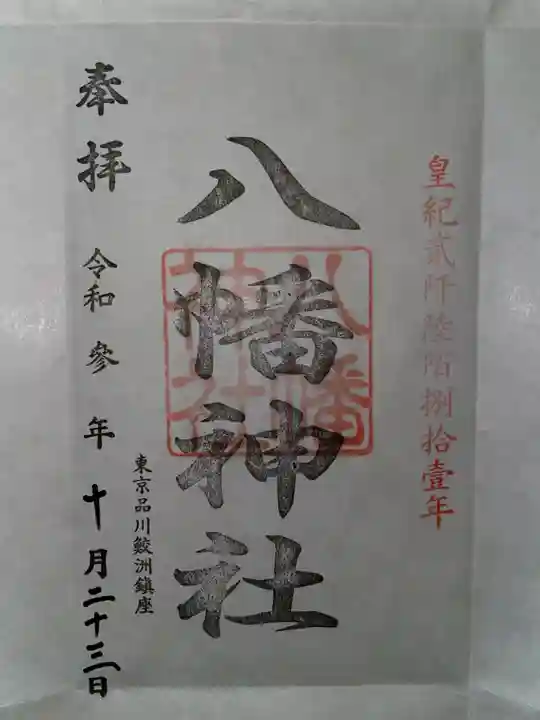 皇紀貳阡陸陌捌拾壹年
八幡神社
八幡
神社
東京品川鮫洲鎮座
奉拝
令和參年十月二十三日